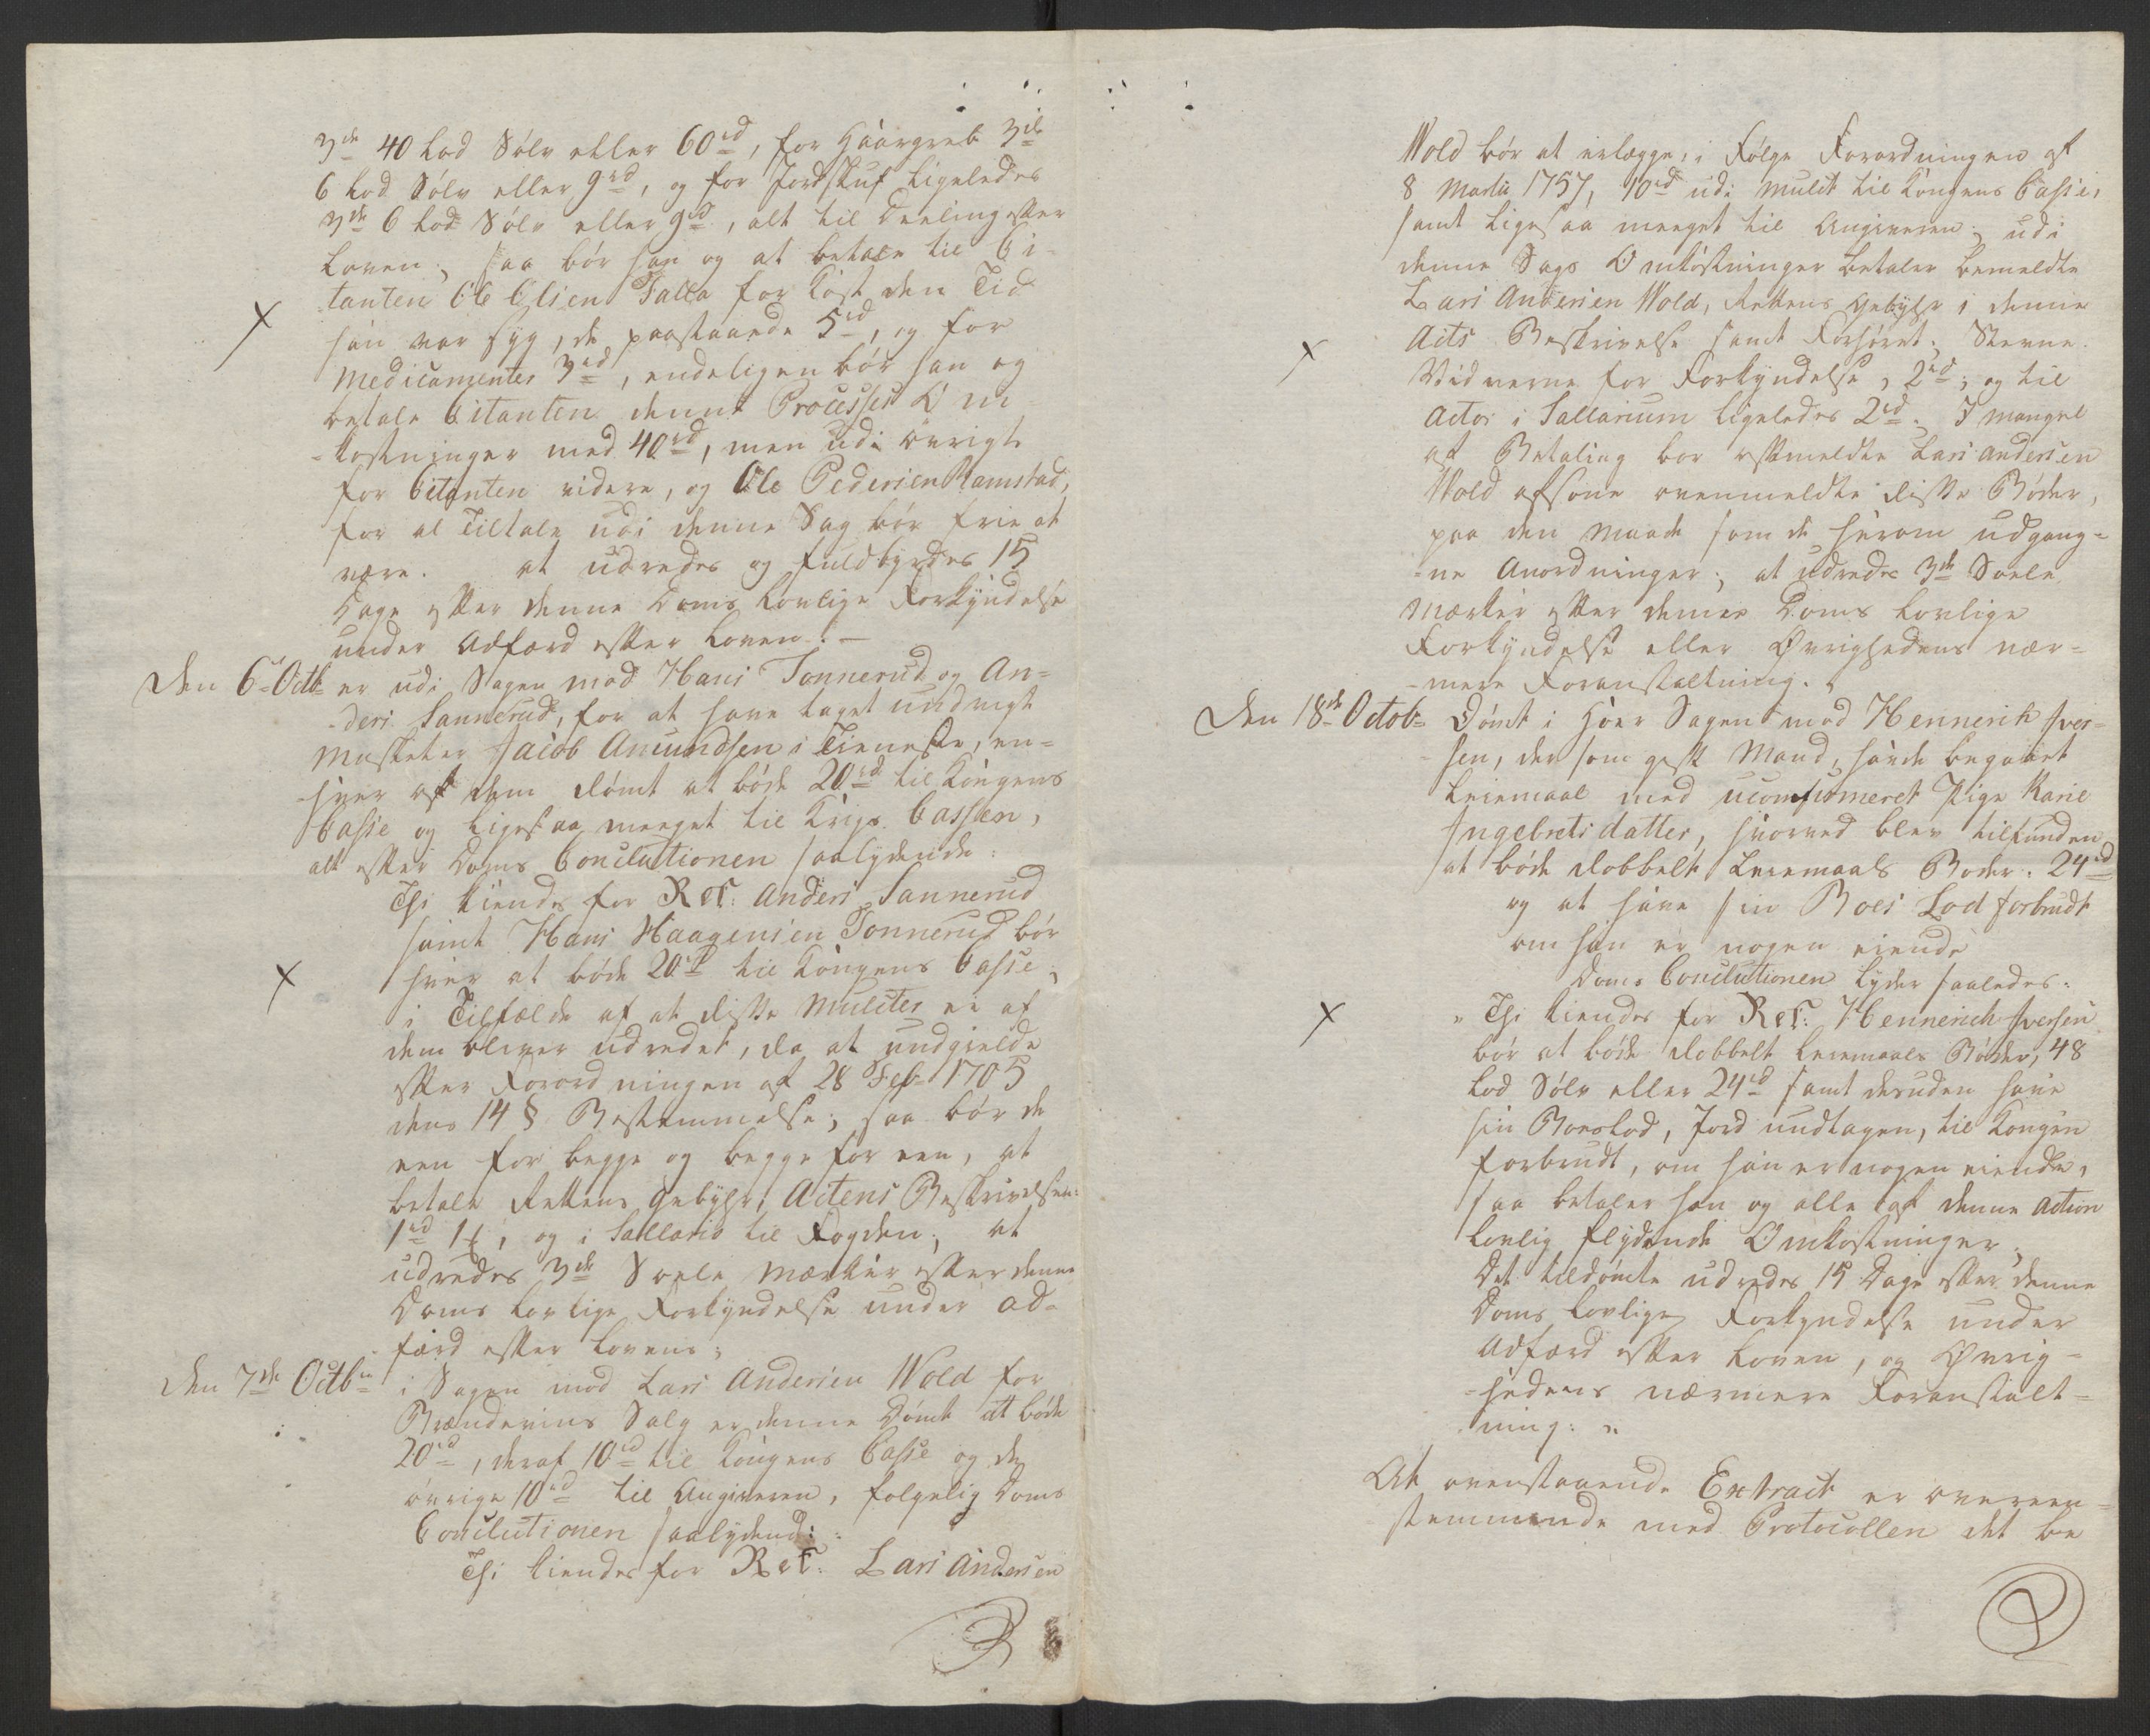 3de 40 Lod Sølv eller 60rd, for Haargreb 3de
6 Lod Sølv eller 9rd, og for Jordskuf ligeledes
3de 6 Lod Sølv eller 9rd, alt til Deeling efter
Loven; saa bør han og at betale til Ci-
tanten Ole Olsen Falla for Kost den Tid
han var syg, de paastaaede 5rd, og for
Medicamenter 3rd, endeligen bør han og
betale Citanten denne Processes Om-
-kostninger med 40rd, men udi øvrigt
for Citanten videre, og Ole Pedersen Ramstad,
for al Tiltale udi denne Sag bør frie at
være. at udredes og fuldbyrdes 15
Dage efter denne Doms Lovlige Forkyndelse
under Adfærd efter Loven. —
Den 6te Octb er udi Sagen mod Hans Tonnerud og An-
-ders Sannerud, for at have taget undvigt
Musketer Jacob Amundsen i Tieneste, en-
hver af dem dømt at bøde 20rd til Kongens
Casse og ligesaa meeget til Krigs Cassen,
alt efter Doms Conclutionen saalydende:
Thi kiendes for Ret: Anders Sannerud
samt Hans Haagensen Tonnerud bør
hver at bøde 20rd til Kongens Casse;
i Tilfælde af at disse Mulcter ei af
dem bliver udredet, da at undgielde
efter Forordningen af 28 Feb 1705
dens 14 § Bestemmelse; saa bør de
een for begge og begge for een, at
betale Rettens Gebyhr, Actens Beskrivelse:
1rd 1 , og i Sallario til Fogden; at
udredes 3de Soele Mærker efter denne
Doms Lovlige Forkyndelse under Ad-
færd efter Loven;
Den 7de Octb i Sagen mod Lars Andersen Wold for
Brændeviins Salg er denne Dømt at bøde
20rd, deraf 10rd til Kongens Casse og de
øvrige 10rd til Angiveren, følgelig Doms
Conclutionen saalydende:
Thi kiendes for Ret: Lars Andersen
Wold bør at erlægge, i Følge Forordningen af
8 Martii 1757, 10rd udi Mulct til Kongens Casse,
samt ligesaa meeget til Angiveren; udi
denne Sags Omkostninger betaler bemeldte
Lars Andersen Wold, Rettens Gebyhr i denne
Acts Beskrivelse samt Forhøret; Stevne
Vidnerne for Forkyndelse, 2rd; og til
Actor i Sallarium ligeledes 2rd. I Mangel
af Betaling bør eftmeldte Lars Andersen
Wold afsone ovenmeldte disse Bøder,
paa den Maade som de herom udgang-
-ne Anordninger; at udredes 3de Soele
Mærker efter denne Doms Lovlige
Forkyndelse eller Øvrighedens nær-
-mere Foranstaltning.
Den 18de Octob Dømt i Hoer Sagen mod Hennerich Iver-
-sen, der som gift Mand, havde begaaet
Leiermaal med uconfirmeret Pige Karie
Ingebretsdatter, hvorved blev tilfunden
at bøde dobbelt Leiermaals Bøder: 24rd
og at have sin Boes Lod forbrudt
om han er nogen eiende
Doms Conclutionen lyder saaledes:
" Thi kiendes for Ret: Hennerich Iversen
bør at bøde dobbelt Leiermaals Bøder, 48
Lod Sølv eller 24rd samt desuden have
sin Boeslod, Jord undtagen, til Kongen
forbrudt, om han er nogen eiende,
saa betaler han og alle af denne Action
lovlig flydende Omkostninger.
Det tildømte udredes 15 Dage efter denne
Doms Lovlige Forkyndelse under
Adfærd efter Loven, og Øvrig-
-hedens nærmere Foranstalt-
ning: "
At ovenstaaende Extract er overeen-
stemmende med Protocollen det be